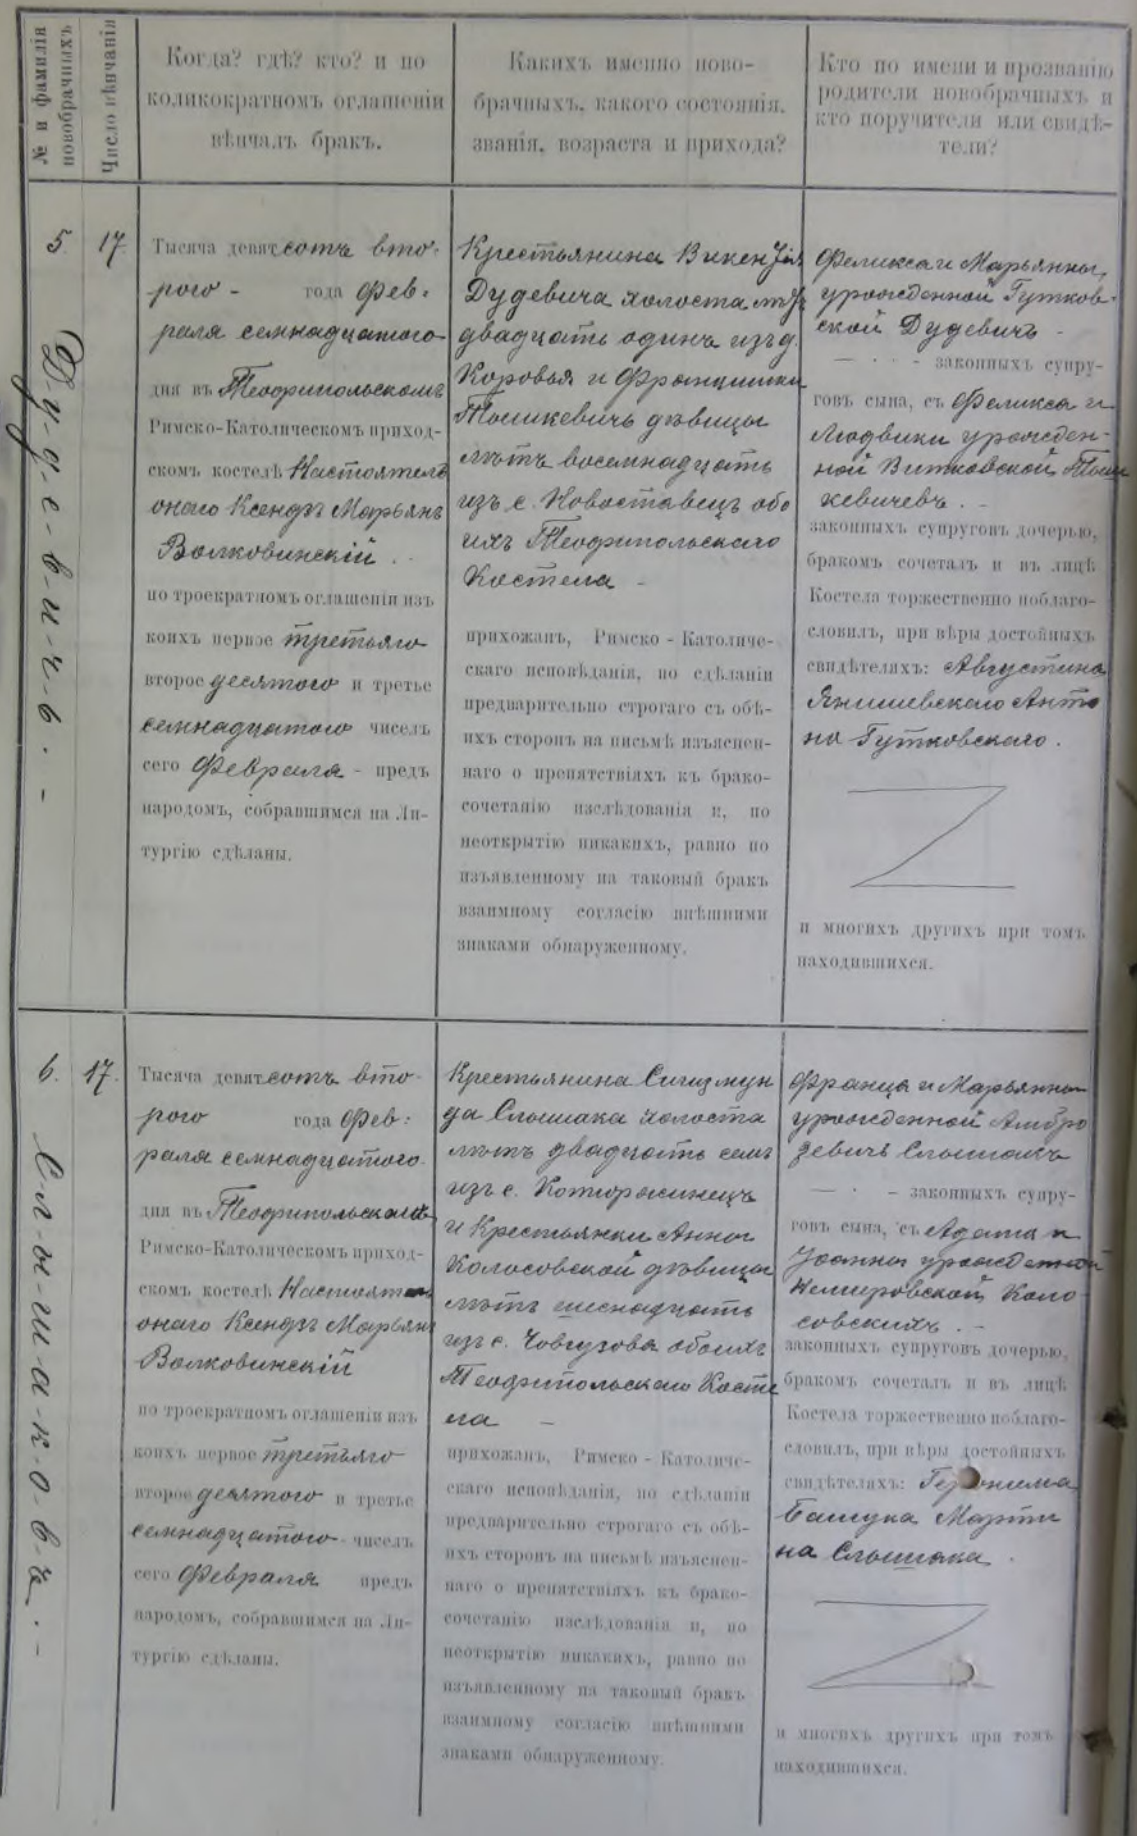 № и фамилія
новобрачныхъ
Число вѣнчанія
Когда? гдѣ? кто? и по
коликократномъ оглашеніи
вѣнчалъ бракъ.
Какихъ именно ново-
брачныхъ, какого состоянія,
званія, возраста и прихода?
Кто по имени и прозванію
родители новобрачныхъ и
кто поручители или свидѣ-
тели?
5.
Дудевичъ. -
17
Тысяча девятсотъ вто-
рого - года Фев-
раля семнадцатого
дня въ Теофипольскомъ
Римско-Католическомъ приход-
скомъ костелѣ Настоятель
онаго Ксендзъ Марьянъ
Волковинскій .-
по троекратномъ оглашеніи изъ
коихъ первое третьяго
второе десятого и третье
семнадцатого чиселъ
сего Февраля - предъ
народомъ, собравшимся на Ли-
тургію сдѣланы.
Крестьянина Викентія
Дудевича холоста лѣтъ
двадцать одинъ изъ д.
Коровья и Францишки
Тошкевичъ дѣвицы
лѣтъ восемнадцать
изъ с. Новоставецъ обо
ихъ Теофипольскаго
Костела -
прихожанъ, Римско - Католиче-
скаго исповѣданія, по сдѣланіи
предварительно строгаго съ обѣ-
ихъ сторонъ на письмѣ изъяснен-
наго о препятствіяхъ къ брако-
сочетанію изслѣдованія и, по
неоткрытію никакихъ, равно по
изъявленному на таковый бракъ
взаимному согласію внѣшними
знаками обнаруженному.
Феликса и Марьянны,
урожденной Гутков-
ской Дудевичъ -
- законныхъ супру-
говъ сына, съ Феликса и
Людвики урожден-
ной Витковской Тош
кевичевъ. -
законныхъ супруговъ дочерью,
бракомъ сочеталъ и въ лицѣ
Костела торжественно поблаго-
словилъ, при вѣры достойныхъ
свидѣтеляхъ: Августина
Янишевскаго Анто
на Гутковскаго.
и многихъ другихъ при томъ
находившихся.
6.
Слышаковъ. -
17.
Тысяча девятсотъ вто-
рого года Фев-
раля семнадцатого
дня въ Теофипольскомъ
Римско-Католическомъ приход-
скомъ костелѣ Настоятель
онаго Ксендзъ Марьянъ
Волковинскій
по троекратномъ оглашеніи изъ
коихъ первое третьяго
второе десятого и третье
семнадцатого чиселъ
сего Февраля предъ
народомъ, собравшимся на Ли-
тургію сдѣланы.
Крестьянина Сигизмун
да Слышака холоста
лѣтъ двадцать семь
изъ с. Котюржинецъ
и Крестьянки Анны
Колосовской дѣвицы
лѣтъ шеснадцать
изъ с. Човгузова обоихъ
Теофипольскаго Косте
ла -
прихожанъ, Римско - Католиче-
скаго исповѣданія, по сдѣланіи
предварительно строгаго съ обѣ-
ихъ сторонъ на письмѣ изъяснен-
наго о препятствіяхъ къ брако-
сочетанію изслѣдованія и, по
неоткрытію никакихъ, равно по
изъявленному на таковый бракъ
взаимному согласію внѣшними
знаками обнаруженному.
Франца и Марьянны
урожденной Амбро
зевичъ Слышакъ
- законныхъ супру-
говъ сына, съ Адама и
Іоанны урожденной
Немировской Коло
совскихъ. -
законныхъ супруговъ дочерью,
бракомъ сочеталъ и въ лицѣ
Костела торжественно поблаго-
словилъ, при вѣры достойныхъ
свидѣтеляхъ: Геронима
Башука Марти
на Слышака.
и многихъ другихъ при томъ
находившихся.